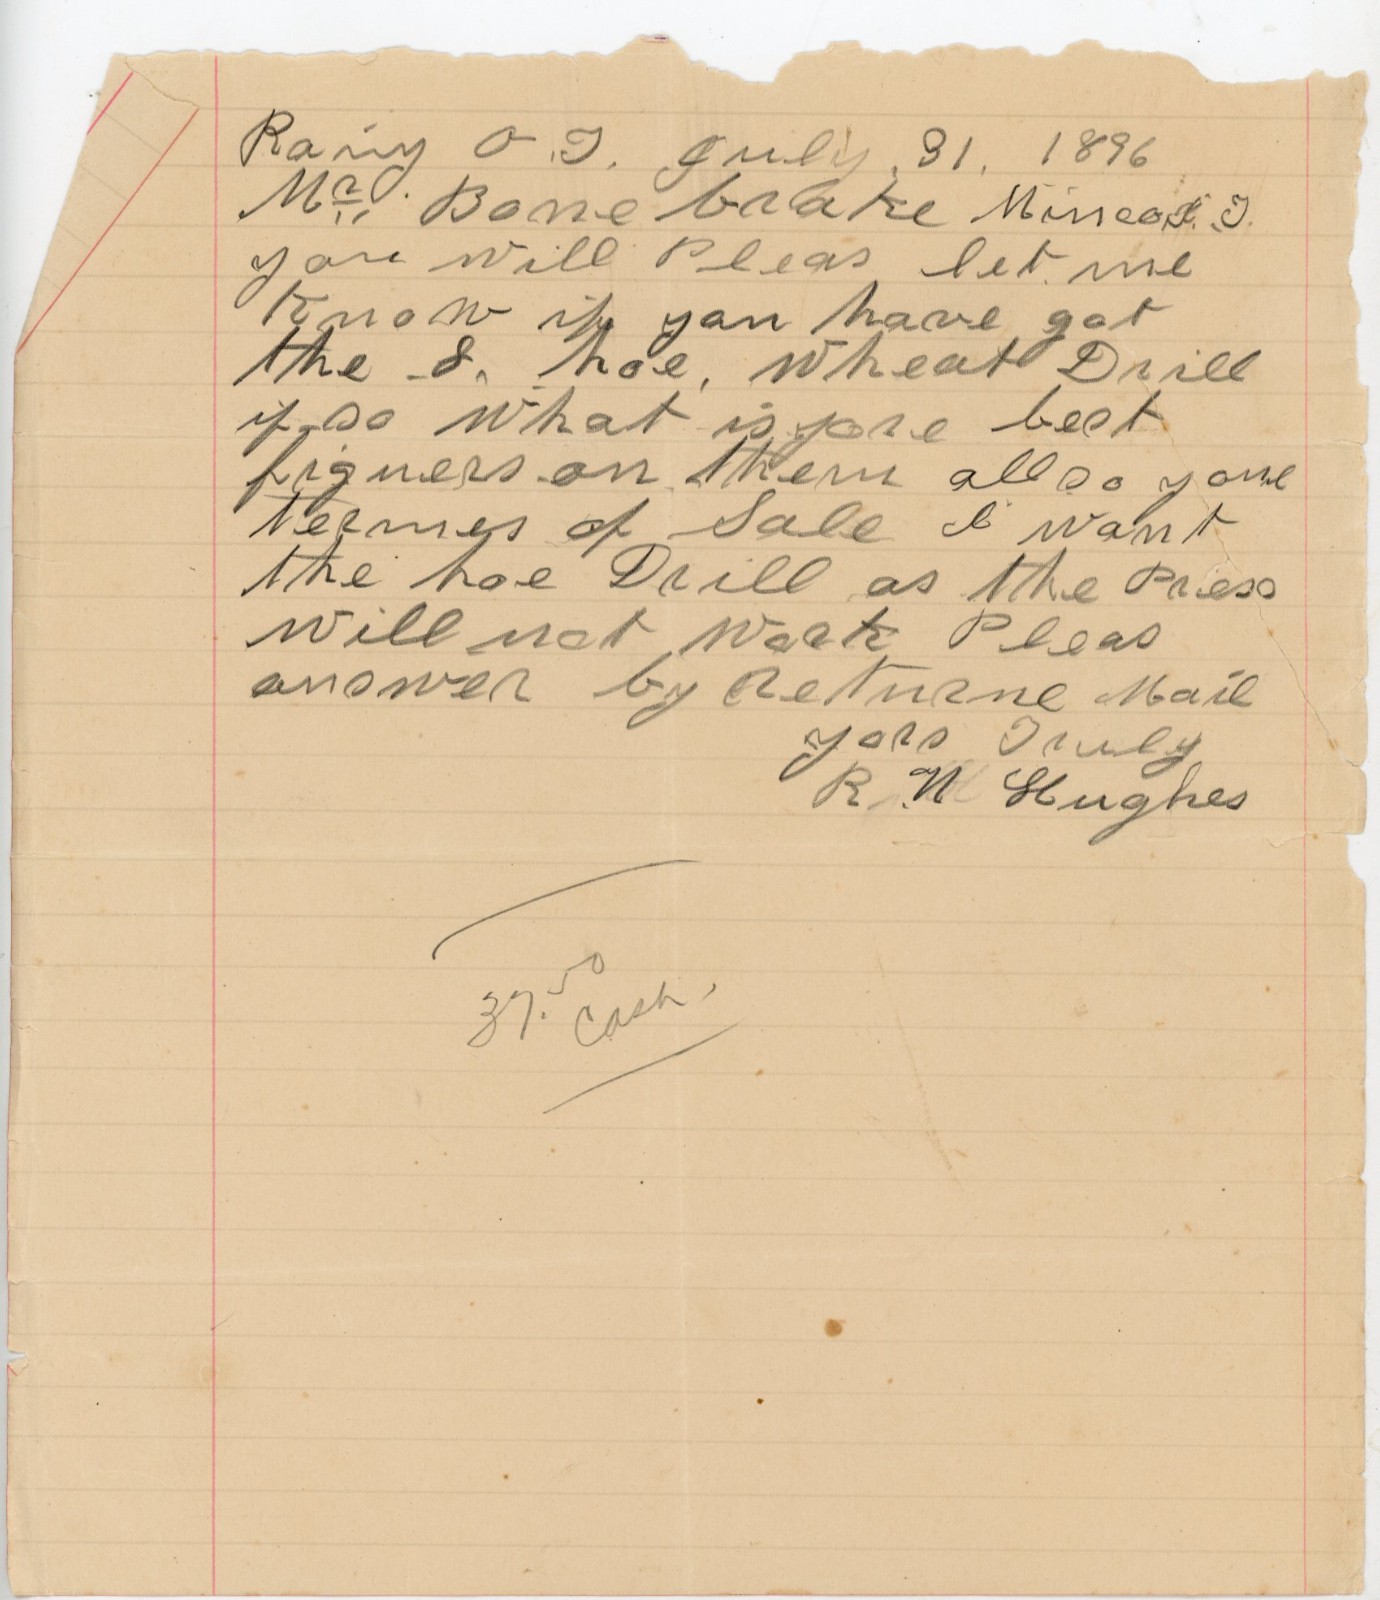 Rainy O.T. July, 31, 1896
Mr. Bone brake Minco I.T.
you will Pleas let me
know if you have got
the 8. hoe, wheat Drill
if so what is yore best
figuers on them allso yore
termes of Sale I want
the hoe Drill as the Press
will not work Pleas
answer by returne Mail
yors Truly
R. N Hughes
37.50
Cash.